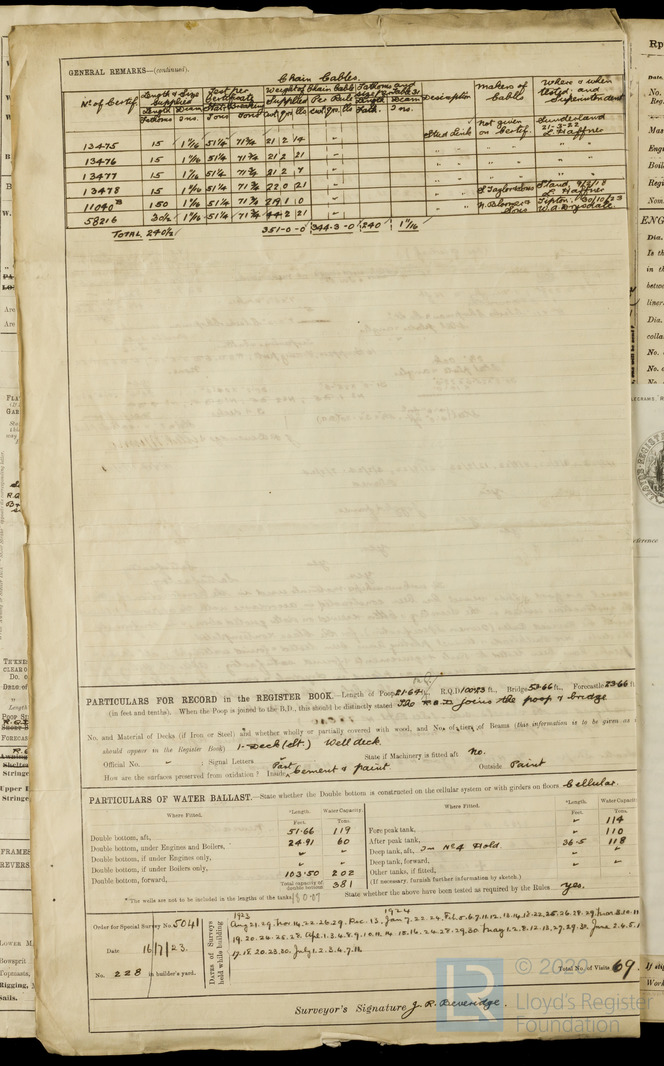 GENERAL REMARKS—(continued).
Chain Cables.
No. of Certif. Length & Size Supplied Test per Certificate Weight of Chain Cable Fathoms and Size per Table 31 Description Makers of Cables Where & when Tested, and Superintendent
Length Diam Stat. Breaking Supplied Per Rule Length Diam
Fathoms Ins. Tons Tons cwt qrs lbs cwt qrs lbs Fath. Ins.
13475 15 1 11/16 51 1/4 71 3/4 21 2 14 Stud Link Not given on Certif. Sunderland 21-3-22 L. Haffner
13476 15 1 11/16 51 1/4 71 3/4 21 2 21 " " " "
13477 15 1 11/16 51 1/4 71 3/4 21 2 7 " " " "
13478 15 1 11/16 51 1/4 71 3/4 22 0 21 " " S. Taylor & Sons S'land L. Haffner
11040 150 1 11/16 51 1/4 71 3/4 219 1 0 " " N. Bloomer & Sons Tipton 30/10/23
58216 30 1/2 1 11/16 51 1/4 71 3/4 44 2 21 W.A. Drysdale
TOTAL 240 1/2 351-0-0 344-3-0 240 1 11/16
PARTICULARS FOR RECORD in the REGISTER BOOK.—Length of Poop 21.64 ft., R.Q.D. 100.83 ft., Bridge 53.66 ft., Forecastle 23.66 ft
(in feet and tenths). When the Poop is joined to the B.D., this should be distinctly stated The R.Q.D joins the poop & bridge
No. and Material of Decks (if Iron or Steel) and whether wholly or partially covered with wood, and No. of tiers of Beams (this information is to be given as
should appear in the Register Book) 1-Deck (stl.) Well deck.
Official No. " ; Signal Letters State if Machinery is fitted aft No.
How are the surfaces preserved from oxidation? Inside Part Cement & paint Outside Paint
PARTICULARS OF WATER BALLAST.—State whether the Double bottom is constructed on the cellular system or with girders on floors Cellular.
Where Fitted. *Length. Water Capacity. Where Fitted. *Length. Water Capacity
Feet. Tons. Feet. Tons.
Double bottom, aft, 51.66 119 Fore peak tank, " 114
Double bottom, under Engines and Boilers, 24.91 60 After peak tank, " 110
Double bottom, if under Engines only, " " Deep tank, aft, In No 4 Hold. 36.5 118
Double bottom, if under Boilers only, " " Deep tank, forward, " "
Double bottom, forward, 103.50 202 Other tanks, if fitted, " "
Total capacity of double bottom 381 (If necessary, furnish further information by sketch.)
* The wells are not to be included in the lengths of the tanks. State whether the above have been tested as required by the Rules Yes.
Order for Special Survey No. 5041
Date 16/7/23.
No. 228 in builder's yard.
DATES of Surveys held while building
1923 1924
Aug 21.29. Nov 14.22.26.29. Dec. 13. Jan 7.22.24. Feb. 5.6.7.11.12.13.14.18.22.25.26.28.29. Mar
19.20.24.25.28. Apl. 1.3.4.8.9.10.11.14.15.16.24.28.29.30 May 1.2.8.12.13.27.29.30. June 2.4.5.
17.18.20.23.30. July 1.2.3.4.7.11.
Total No. of Visits 69.
Surveyor's Signature J. R. Beveridge.
© 2020
Lloyd's Register
Foundation
LR